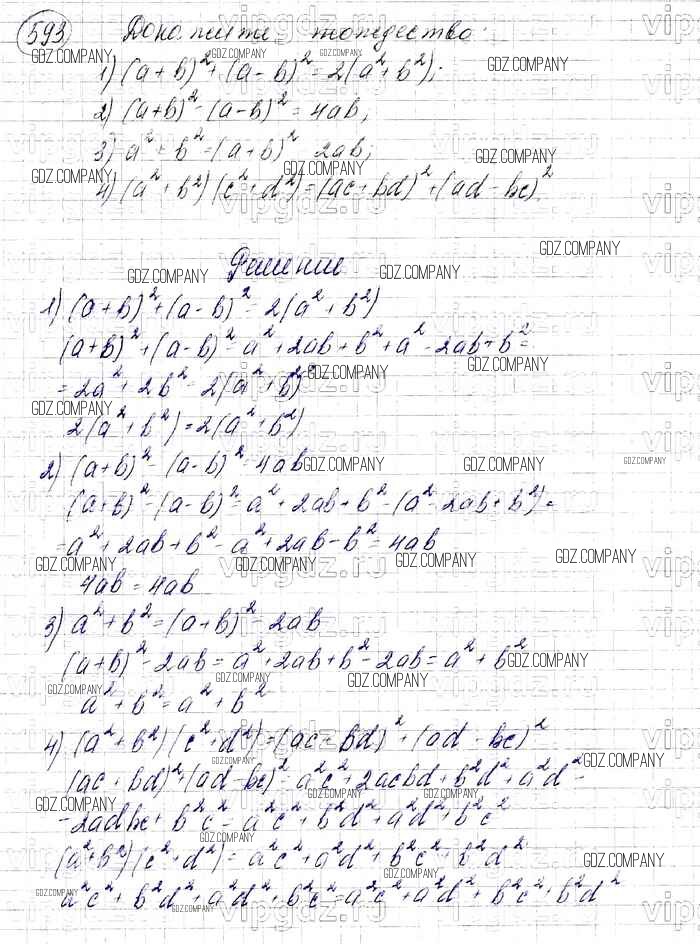 593 Докажите тождество:
1) (a+b)²+(a-b)²=2(a²+b²);
2) (a+b)²-(a-b)²=4ab;
3) a²+b²=(a+b)²-2ab;
4) (a²+b²)(c²+d²)=(ac+bd)²+(ad-bc)²
Решение
1) (a+b)²+(a-b)²=2(a²+b²)
(a+b)²+(a-b)²=a²+2ab+b²+a²-2ab+b²=
=2a²+2b²=2(a²+b²)
2(a²+b²)=2(a²+b²)
2) (a+b)²-(a-b)²=4ab
(a+b)²-(a-b)²=a²+2ab+b²-(a²-2ab+b²)=
=a²+2ab+b²-a²+2ab-b²=4ab
4ab=4ab
3) a²+b²=(a+b)²-2ab
(a+b)²-2ab=a²+2ab+b²-2ab=a²+b²
a²+b²=a²+b²
4) (a²+b²)(c²+d²)=(ac+bd)²+(ad-bc)²
(ac+bd)²+(ad-bc)²=a²c²+2acbd+b²d²+a²d²-
-2adbc+b²c²=a²c²+b²d²+a²d²+b²c²
(a²+b²)(c²+d²)=a²c²+a²d²+b²c²+b²d²
a²c²+b²d²+a²d²+b²c²=a²c²+a²d²+b²c²+b²d²
GDZ.COMPANY
vipgdz.ru